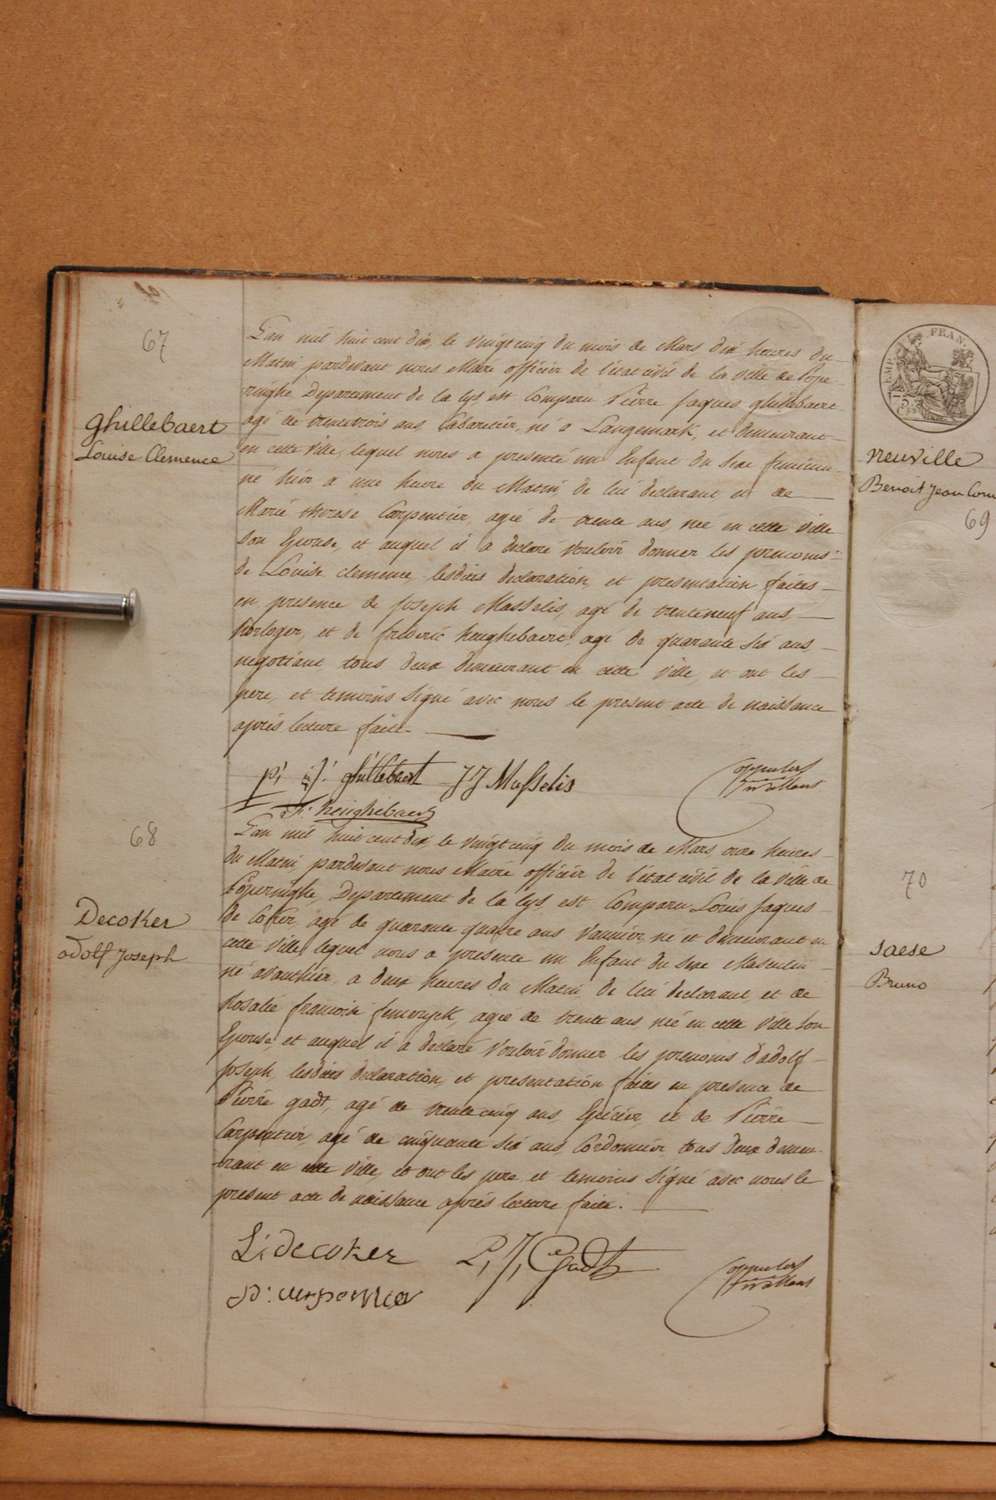 67
Ghillebaert
Louise Clemence
L'an mil huit cent dix le vingt cinq du mois de Mars dix heures du
Matin pardevant nous Maire officier de l'etat civil de la ville de Pope-
ringhe Departement de la Lys est Comparu Pierre Jaques ghillebaert
agé de trentetrois ans Cabaretier, né a Langemark, et demeurant
en cette ville, lequel nous a presenté un Enfant du Sexe feminin
né hier a une heure du Matin de lui declarant et de
Marie therese Carpentier, agée de trente ans née en cette ville
Son Epouse, et auquel il a declaré vouloir donner les prenoms
de Louise Clemence, lesdites declaration, et presentation faites
en presence de Joseph Masselis, agé de trenteneuf ans
horloger, et de frederic henghebaert agé de quarante six ans
negotiant tous deux demeurant en cette ville, et ont les
pere, et temoins Signé avec nous le present acte de naissance
aprés lecture faite.
p: j: ghillebaert JJ Masselis
fr. henghebaert
68
Decoker
adolf Joseph
L'an mil huit cent dix le vingt cinq du mois de Mars onze heures
du Matin pardevant nous Maire officier de l'etat civil de la ville de
Poperinghe, Departement de la Lys est Comparu Louis Jaques
de Coker agé de quarante quatre ans Vannier né et demeurant en
cette ville lequel nous a presenté un Enfant du Sexe Masculin
né avanthier a deux heures du Matin de lui declarant, et de
Rosalie francoise agée de trente ans née en cette ville Son
Epouse, et auquel il a declaré Vouloir donner les prenoms d'adolf
Joseph lesdites declaration, et presentation faites en presence de
Pierre gadt, agé de trente cinq ans Epicier et de Pierre
Carpentier agé de cinquante six ans, Cordonnier tous deux demeu-
rant en cette ville, et ont les pere, et temoins Signé avec nous le
present acte de naissance aprés lecture faite.
L: decoker P, J, Gadt
P: carpentier
EMP. FRAN.
neuville
Benoit Jean Corn
69
70
Saese
Bruno